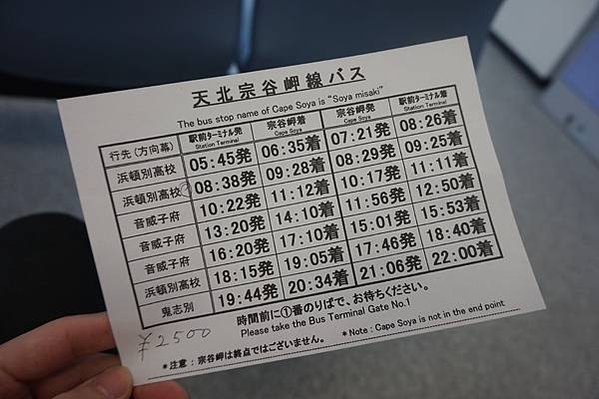 天北宗谷岬線バス
The bus stop name of Cape Soya is "Soya misaki"
行先(方向幕) 駅前ターミナル発 宗谷岬着 宗谷岬発 駅前ターミナル着
Station Terminal Cape Soya Cape Soya Station Terminal
浜頓別高校 05:45発 06:35着 07:21発 08:26着
浜頓別高校 08:38発 09:28着 08:29発 09:25着
音威子府 10:22発 11:12着 10:17発 11:11着
音威子府 13:20発 14:10着 11:56発 12:50着
音威子府 16:20発 17:10着 15:01発 15:53着
浜頓別高校 18:15発 19:05着 17:46発 18:40着
鬼志別 19:44発 20:34着 21:06発 22:00着
時間前に①番のりばで、お待ちください。
Please take the Bus Terminal Gate No.1
¥2500
*注意:宗谷岬は終点ではございません。 *Note:Cape Soya is not in the end point